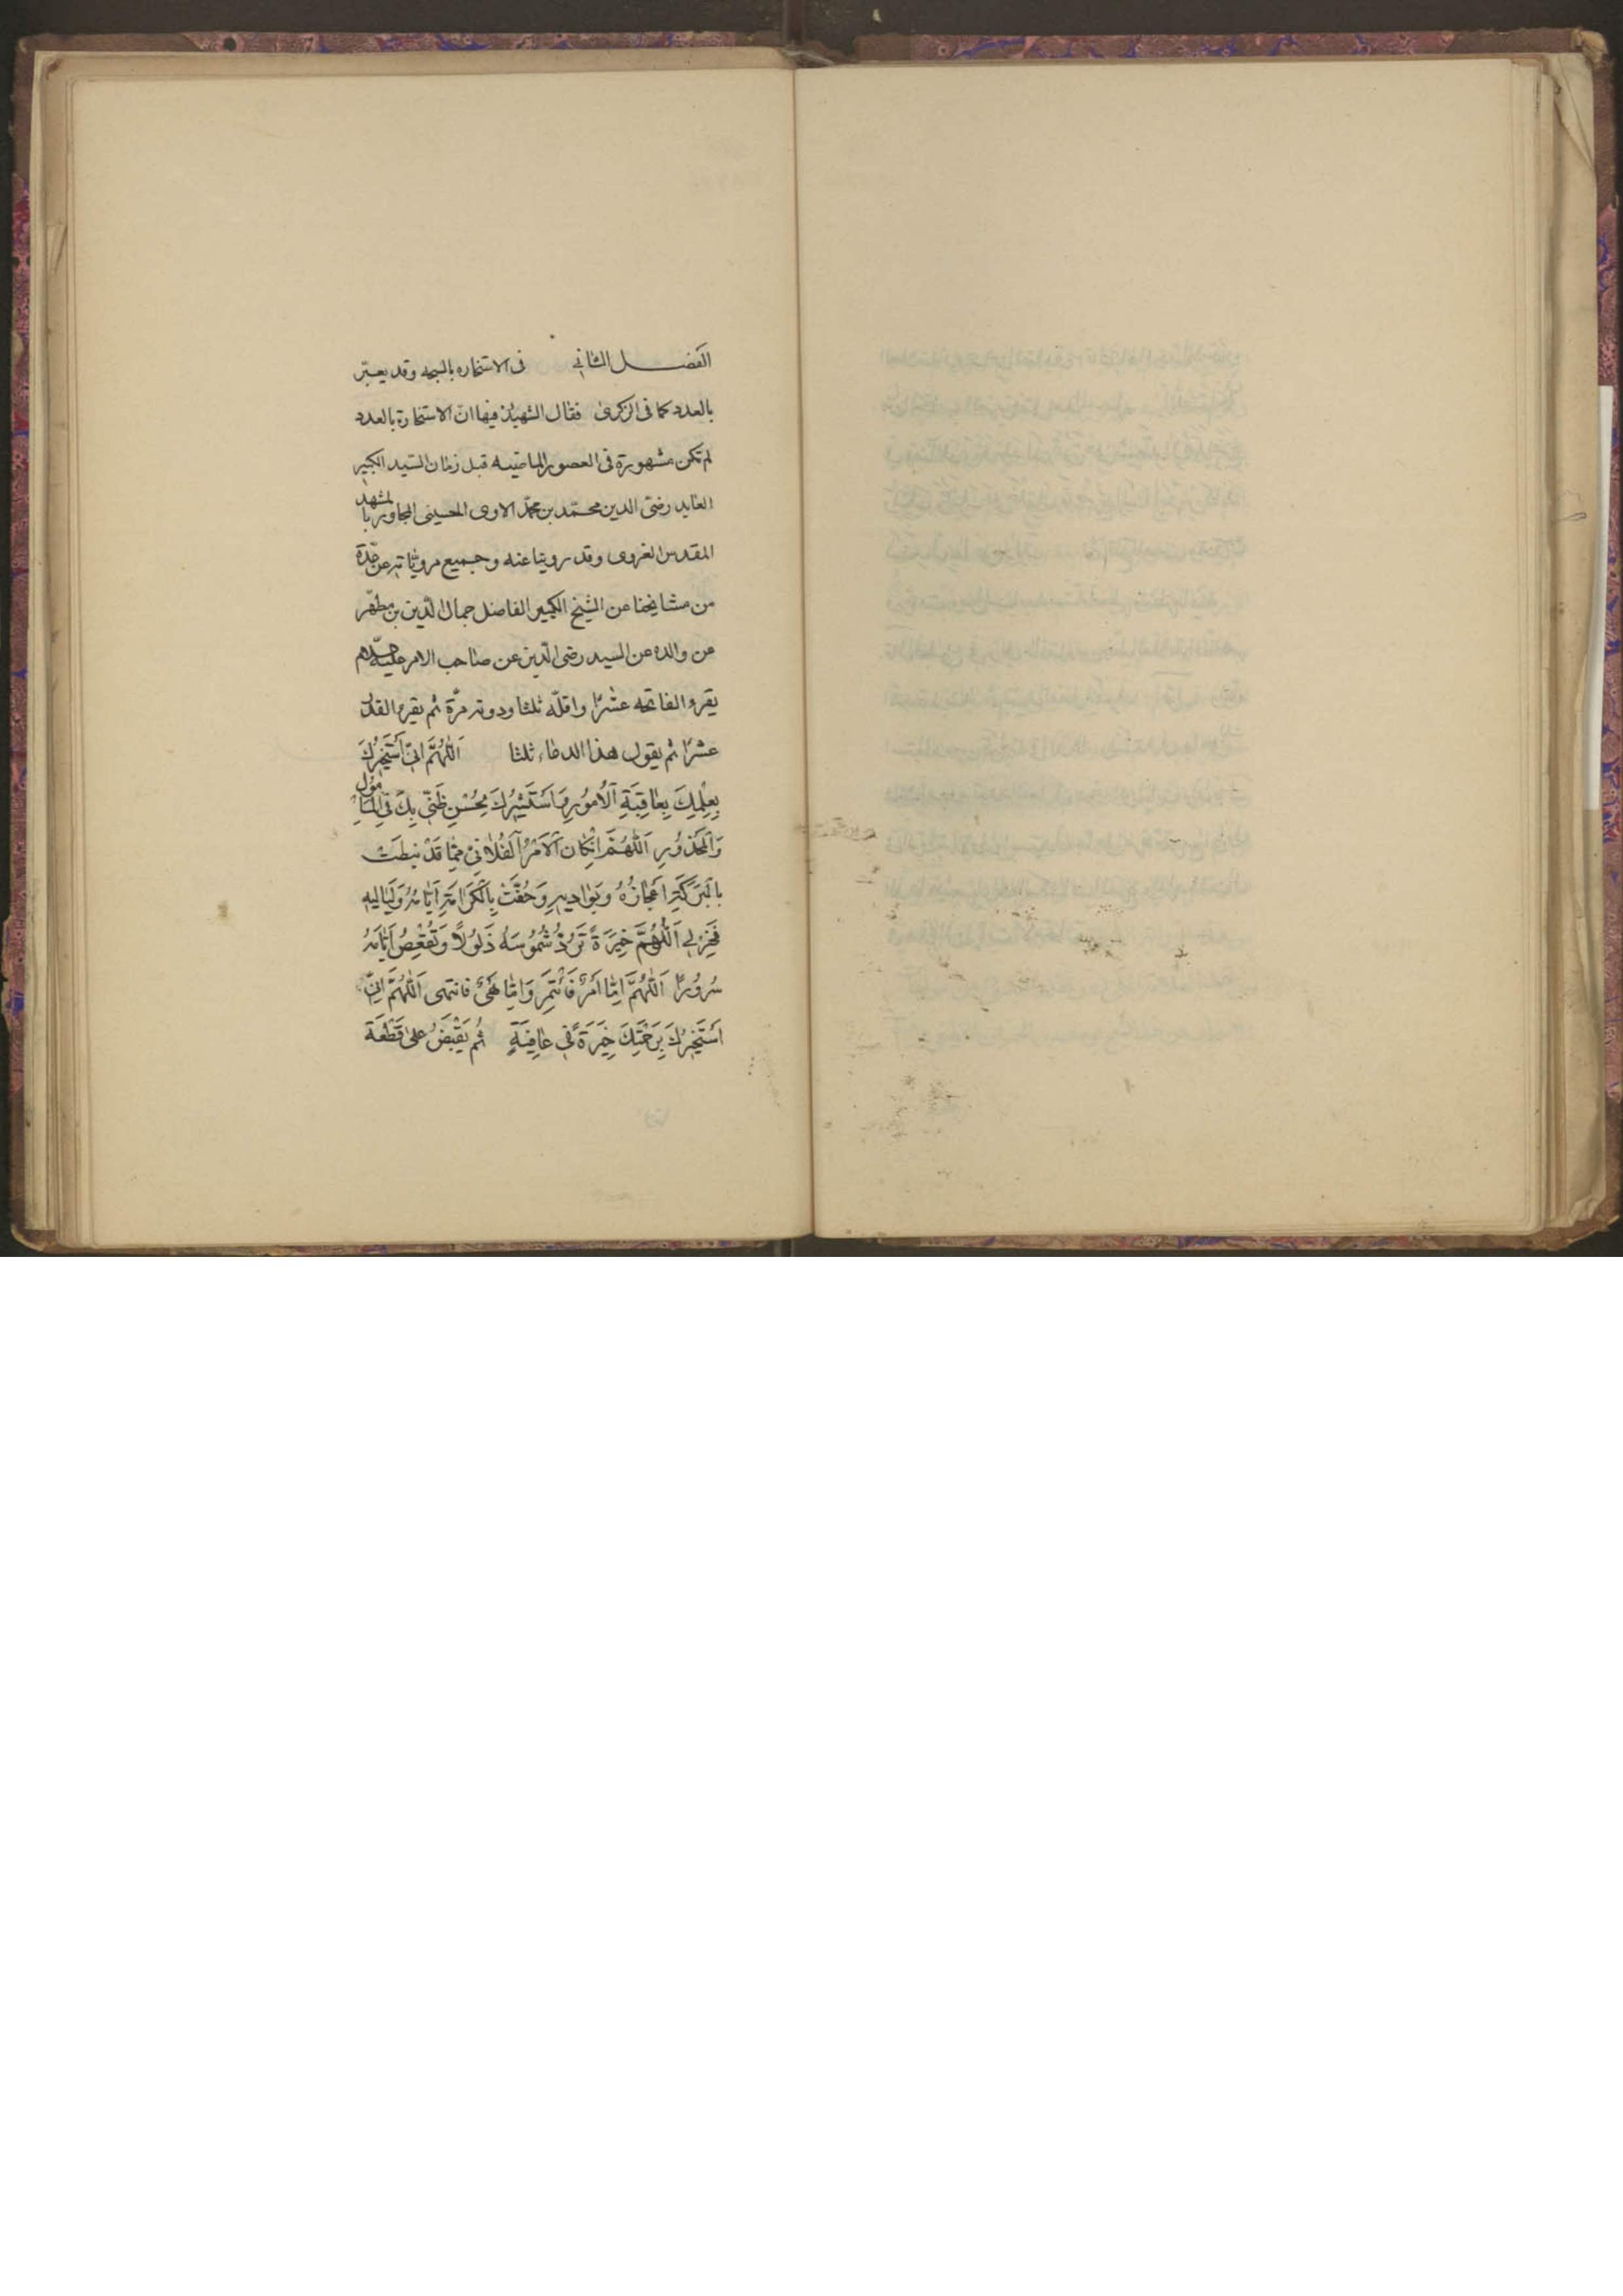 الفصل الثانی فی الاستخاره بالسبحه وقد یعبّر
بالعدد کما فی الذکری فقال الشهید فیها انّ الاستخارة بالعدد
لم تکن مشهورة فی العصور الماضیه قبل زمان السّید الکبیر
العابد رضیّ الدین محمّد بن محمّد الاوی الحسینی المجاور بالمشهد
المقدس الغروی وقد روینا عنه وجمیع مرویّاته عن عدّة
من مشایخنا عن الشیخ الکبیر الفاضل جمال الدّین بن مطهّر
عن والده عن السید رضی الدّین عن صاحب الامر علیه السّلام
یقرو الفاتحه عشرًا واقلّه ثلثا ودونه مرّة ثم یقرو القدر
عشرًا ثم یقول هذا الدعاء ثلثا اَللّٰهُمَّ اِنّی اَسْتَخیرُکَ
بِعِلْمِکَ بِعاقِبَةِ اَلْاُمُورِ وَاَسْتَشیرُکَ بِحُسْنِ ظَنّی بِکَ فِی الْمَأْمُولِ
وَاَلْمَحْذُورِ اَللّٰهُمَّ اِنْ کان اَلْاَمْرُ اَلْفُلانیّ مِمّا قَدْ نیطَتْ
بِالْبَرَکَةِ اَعْجازُهُ وبَوادیهِ وَحُفَّتْ بِالْکَرامَةِ اَیّامُهُ وَلَیالیهِ
فَخِرْ لی اَللّٰهُمَّ خِیَرَةً تَرُدُّ شُمُوسَهُ ذَلُولًا وَتَقْعَصُ اَیّامَهُ
سُرُورًا اَللّٰهُمَّ اِمّا اَمْرٌ فَأْتَمِرُ وَاِمّا نَهْیٌ فانتهی اَللّٰهُمَّ اِنّی
اَسْتَخیرُکَ بِرَحْمَتِکَ خِیَرَةً فی عافِیَةٍ ثُم یَقْبَضُ علی قَطْعَة